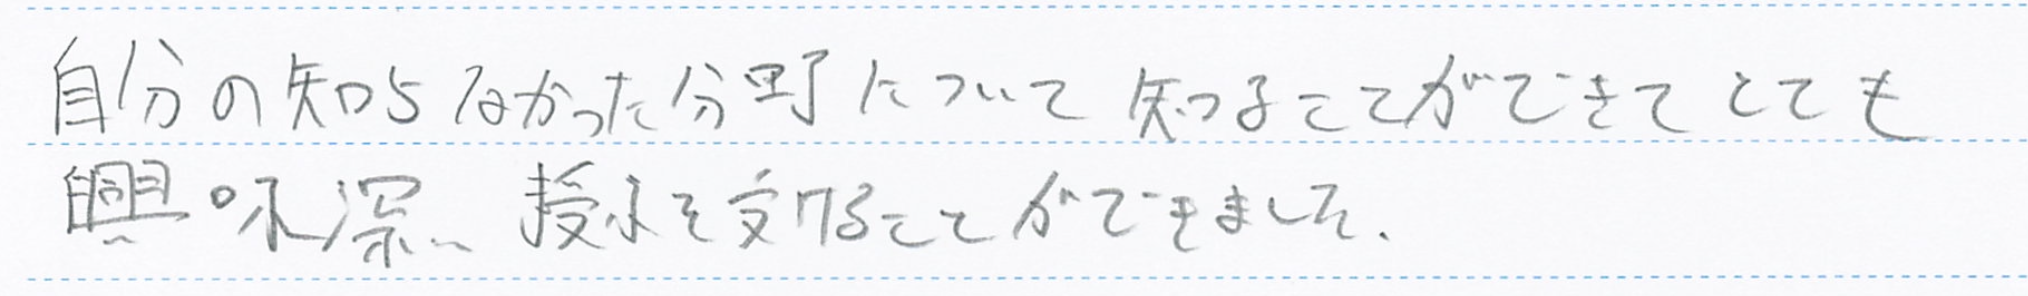 自分の知らなかった分野について知ることができてとても
興味深い授業を受けることができました.